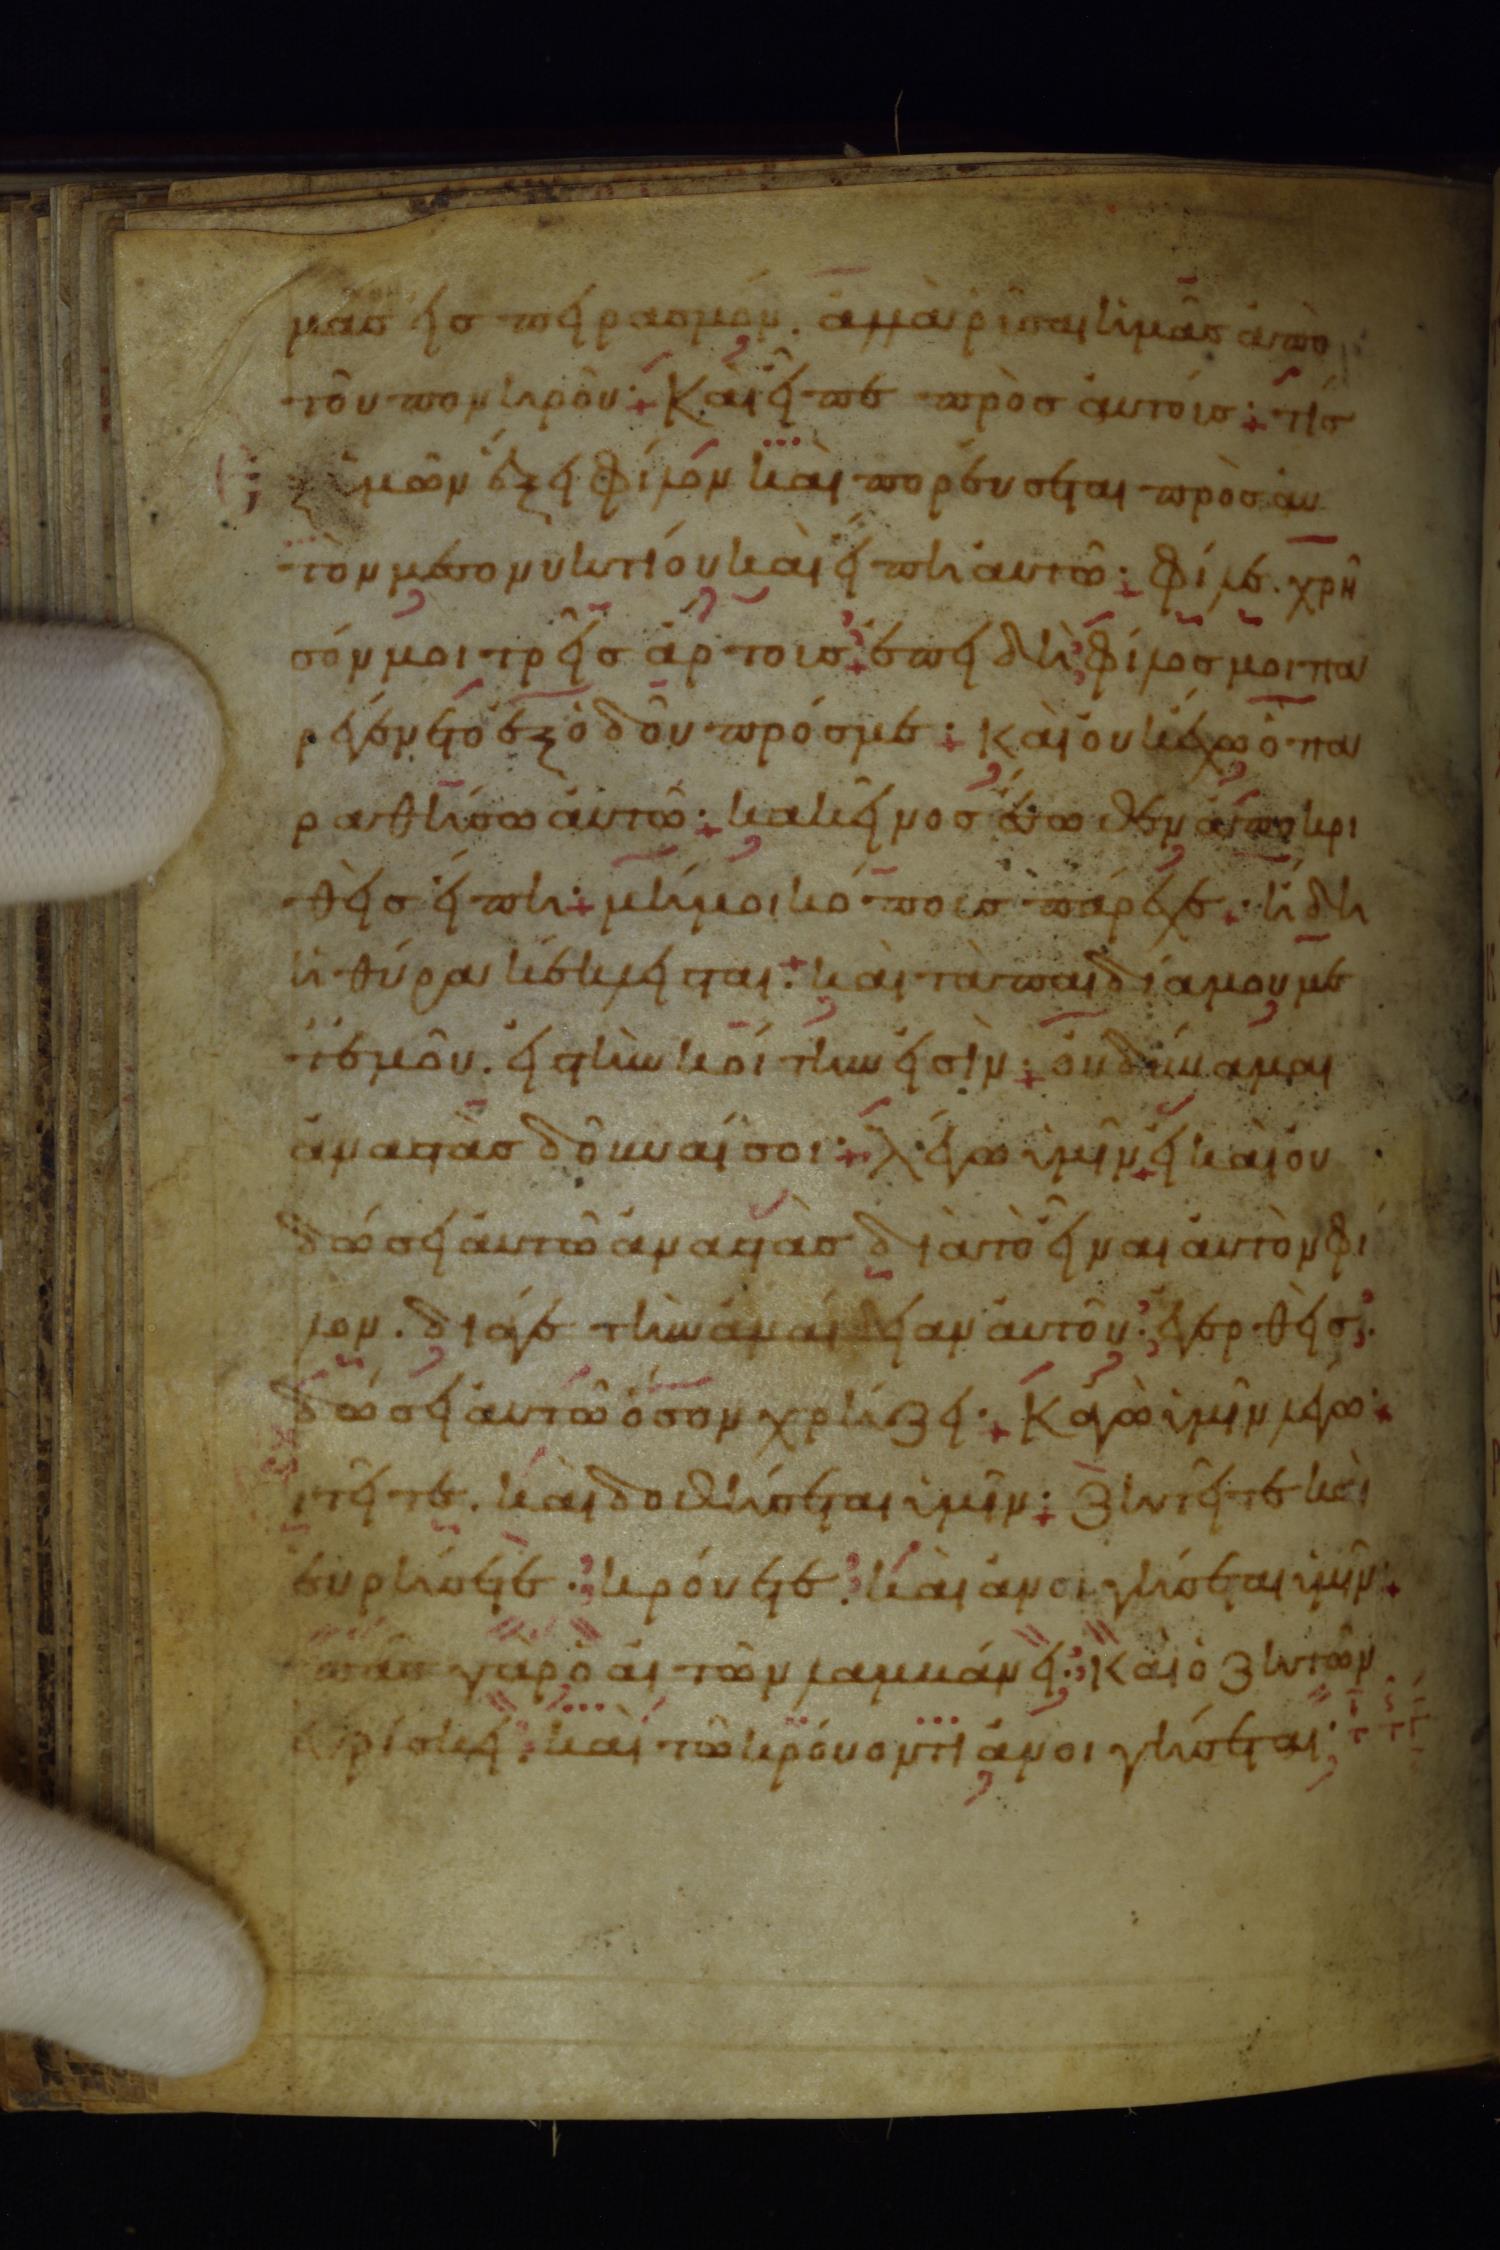 μασ εἰσ πειρασμόν. ἀλλὰ ῥῦσαι ἡμᾶσ ἀπὸ
τοῦ πονηροῦ· Καὶ εἶπε πρὸσ ἀυτοίσ· τίσ
ἱμῶν ἕξει φίλον καὶ πορέυσεται πρὸσ ἀυ
τὸν μεσονυκτίου καὶ εἴπη ἀυτῶ· φίλε. χρῆ
σόν μοι τρεῖσ ἄρτοισ· ἐπειδὴ φίλοσ μοι πα
ρεγένετο ἐξ ὁδοῦ πρόσ με· Καὶ ὀυκ ἔχω ὁ πα
ραθήσω ἀυτῶ· κακεῖνοσ ἔσωθεν ἀποκρι
θὲισ εἴπη· μή μοι κόποισ πάρεχε· ἤδη
ἡ θύρα κέκλεισται· καὶ τὰ παιδία μου με
τ ἐμοῦ. εἰσ τὴν κοίτην εἰσὶν· ὀυ δύναμαι
ἀναστὰσ δοῦναί σοι· λέγω ὑμῖν εἰ καὶ ὀυ
δώσει ἀυτῶ ἀναστὰσ διὰ τὸ εἶναι ἀυτὸν φί
λον. διά γε τὴν ἀναίδειαν ἀυτοῦ· ἐγερθεὶσ·
δώσει ἀυτῶ ὅσον χρήζει· Καγὼ ὑμῖν λέγω·
ἰτεῖτε. καὶ δοθήσεται ὑμῖν· Ζητεῖτε καὶ
ἑυρήσετε· κρόυετε. καὶ ἀνοιγήσεται ὑμῖν·
πᾶσ γὰρ ὁ αἰτῶν λαμβάνει· Καὶ ὁ ζητῶν
ἑυρίσκει· καὶ τῶ κρόυοντι ἀνοιγήσεται·